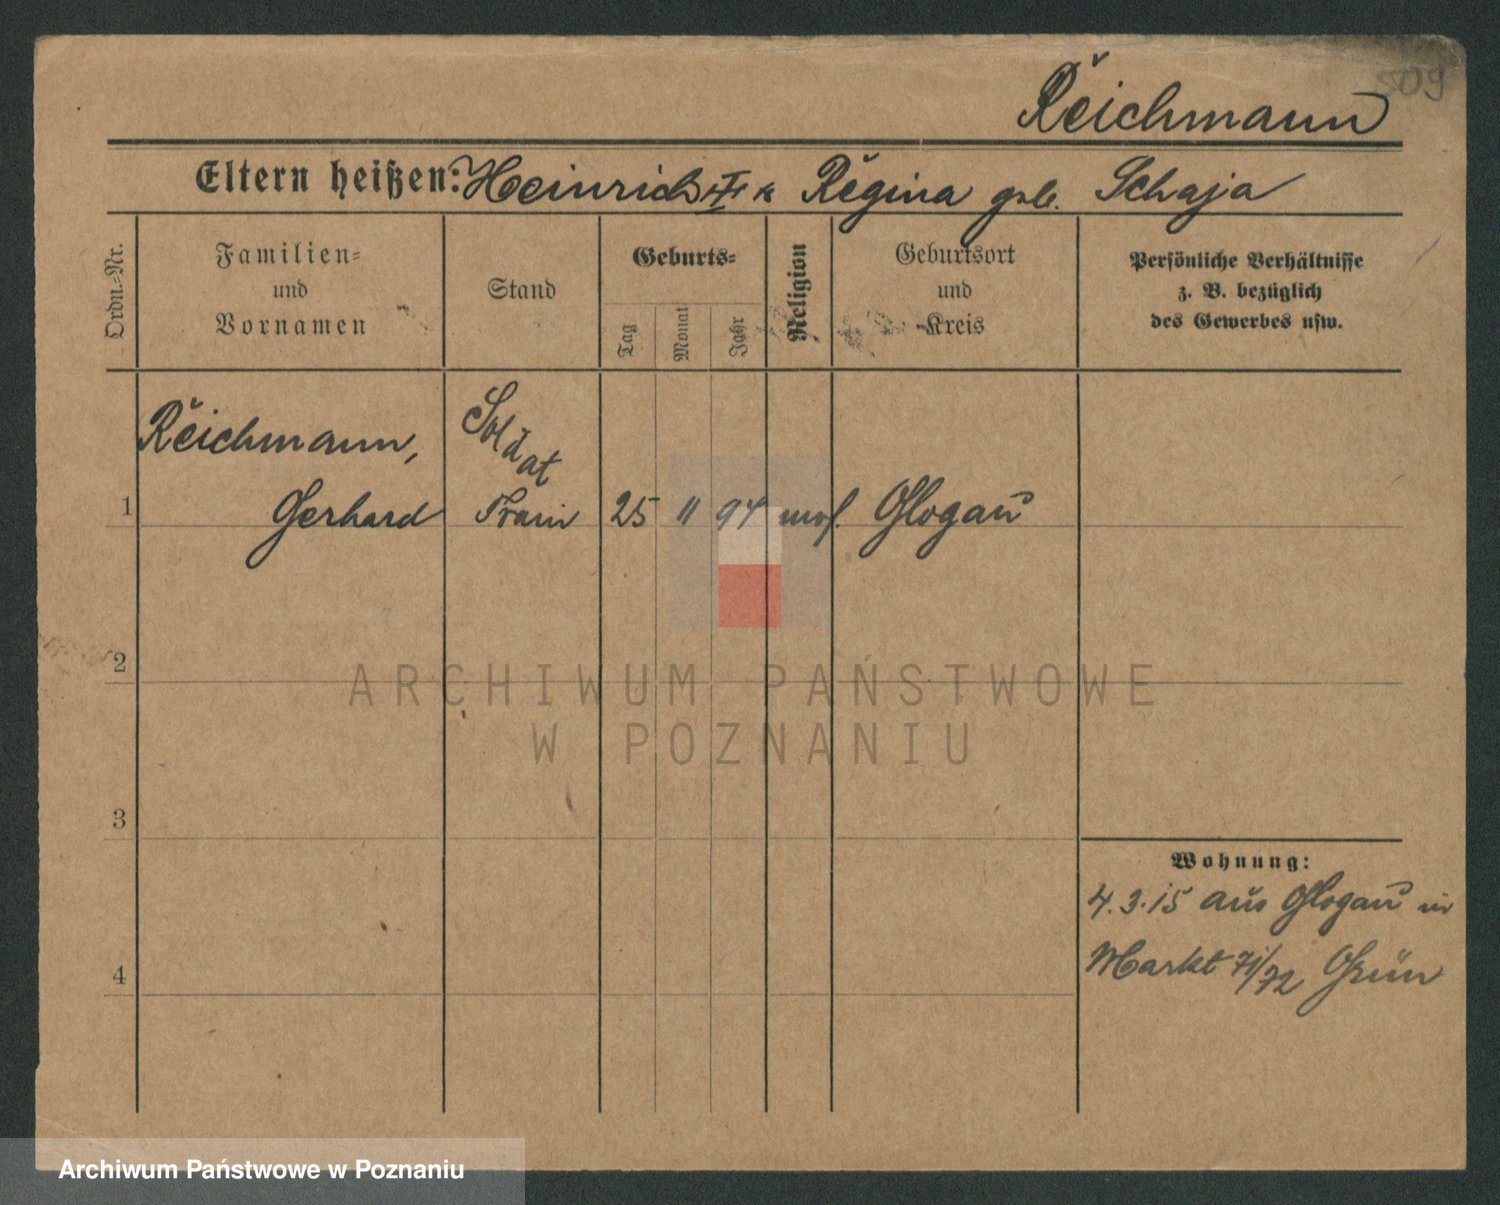 509
Reichmann
Eltern heißen: Heinrich II u Regina geb. Schaja
Ordn.-Nr.
Familien-
und
Vornamen
Stand
Geburts-
Tag
Monat
Jahr
Religion
Geburtsort
und
Kreis
Persönliche Verhältnisse
z. B. bezüglich
des Gewerbes usw.
Reichmann,
Soldat
1 Gerhard Train 25 11 94 mos. Glogau
2
ARCHIWUM PAŃSTWOWE
W POZNANIU
3
Wohnung:
4.3.15 aus Glogau in
Markt 71/72 Grün
4
Archiwum Państwowe w Poznaniu